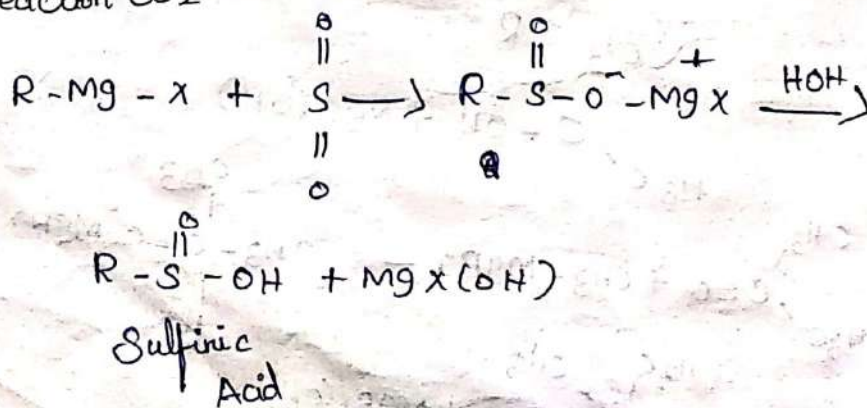 O O
|| ||
R - Mg - X + S ⟶ R - S - O⁻ - Mg⁺ X HOH ⟶
||
O
O
||
R - S - OH + Mg X (OH)
Sulfinic
Acid